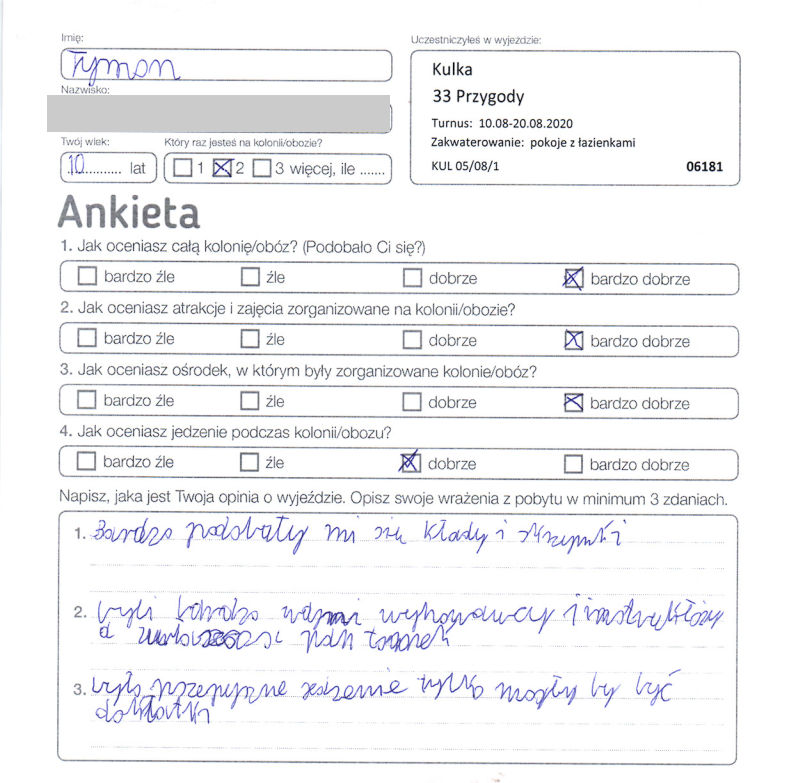 Imię:
Tymon
Nazwisko:
Twój wiek:
10 lat
Który raz jesteś na kolonii/obozie?
1 2 3 więcej, ile .......
Uczestniczyłeś w wyjeździe:
Kulka
33 Przygody
Turnus: 10.08-20.08.2020
Zakwaterowanie: pokoje z łazienkami
KUL 05/08/1 06181
Ankieta
1. Jak oceniasz całą kolonię/obóz? (Podobało Ci się?)
bardzo źle źle dobrze bardzo dobrze
2. Jak oceniasz atrakcje i zajęcia zorganizowane na kolonii/obozie?
bardzo źle źle dobrze bardzo dobrze
3. Jak oceniasz ośrodek, w którym były zorganizowane kolonie/obóz?
bardzo źle źle dobrze bardzo dobrze
4. Jak oceniasz jedzenie podczas kolonii/obozu?
bardzo źle źle dobrze bardzo dobrze
Napisz, jaka jest Twoja opinia o wyjeździe. Opisz swoje wrażenia z pobytu w minimum 3 zdaniach.
1. Bardzo podobały mi się kłady i skrzynki
2. byli bardzo wychowawcy i
a pan tomek
3. było przepyszne jedzenie tylko mogły by być
dokładki